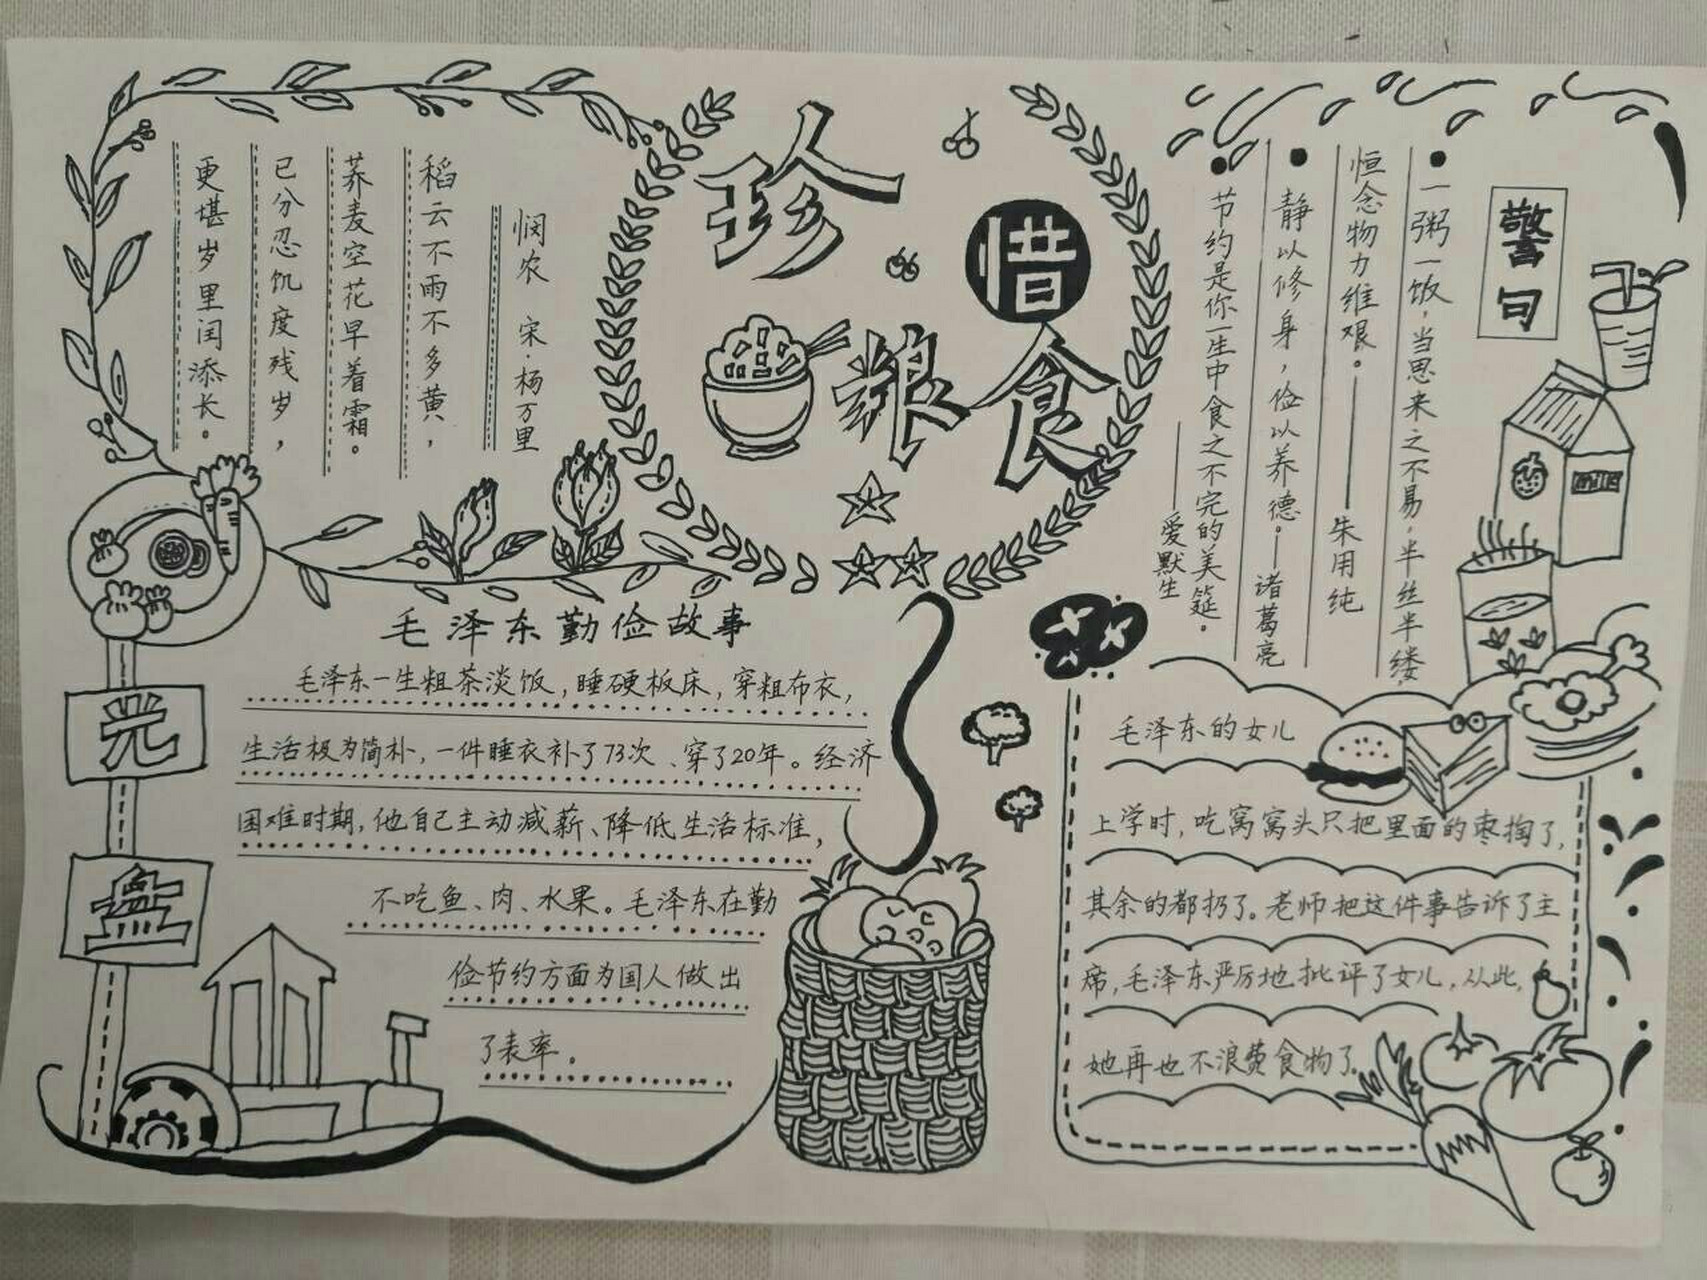 珍惜粮食
悯农 宋·杨万里
稻云不雨不多黄，
荞麦空花早着霜。
已分忍饥度残岁，
更堪岁里闰添长。
警句
●一粥一饭，当思来之不易，半丝半缕，
恒念物力维艰。——朱用纯
●静以修身，俭以养德。——诸葛亮
●节约是你一生中食之不完的美筵。
——爱默生
光
盘
毛泽东勤俭故事
毛泽东一生粗茶淡饭，睡硬板床，穿粗布衣，
生活极为简朴，一件睡衣补了73次、穿了20年。经济
困难时期，他自己主动减薪、降低生活标准，
不吃鱼、肉、水果。毛泽东在勤
俭节约方面为国人做出
了表率。
毛泽东的女儿
上学时，吃窝窝头只把里面的枣掏了，
其余的都扔了。老师把这件事告诉了主
席，毛泽东严厉地批评了女儿，从此，
她再也不浪费食物了。